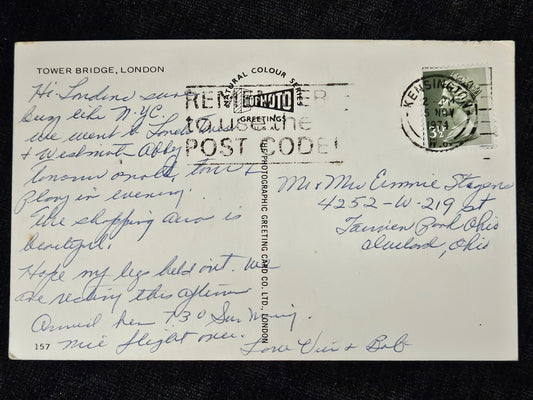 TOWER BRIDGE, LONDON
Hi. London sure
busy like N.Y.C.
We went to
& Westminster Abby
tour &
Play in evening.
The shopping area is
beautiful.
Hope my legs hold out. We
are resting this afternoon
Arrived here 730 Sun Morning.
Nice flight over. Love Vi & Bob
157
NATURAL COLOUR SERIES
PHOTO
GREETINGS
REMEMBER
to use the
POST CODE!
THE PHOTOGRAPHIC GREETING CARD CO. LTD., LONDON
KENSINGTON
5 NOV
1974
Mr & Mrs Emmie
4252-W-219 St
Fairview Park Ohio
Cleveland, Ohio